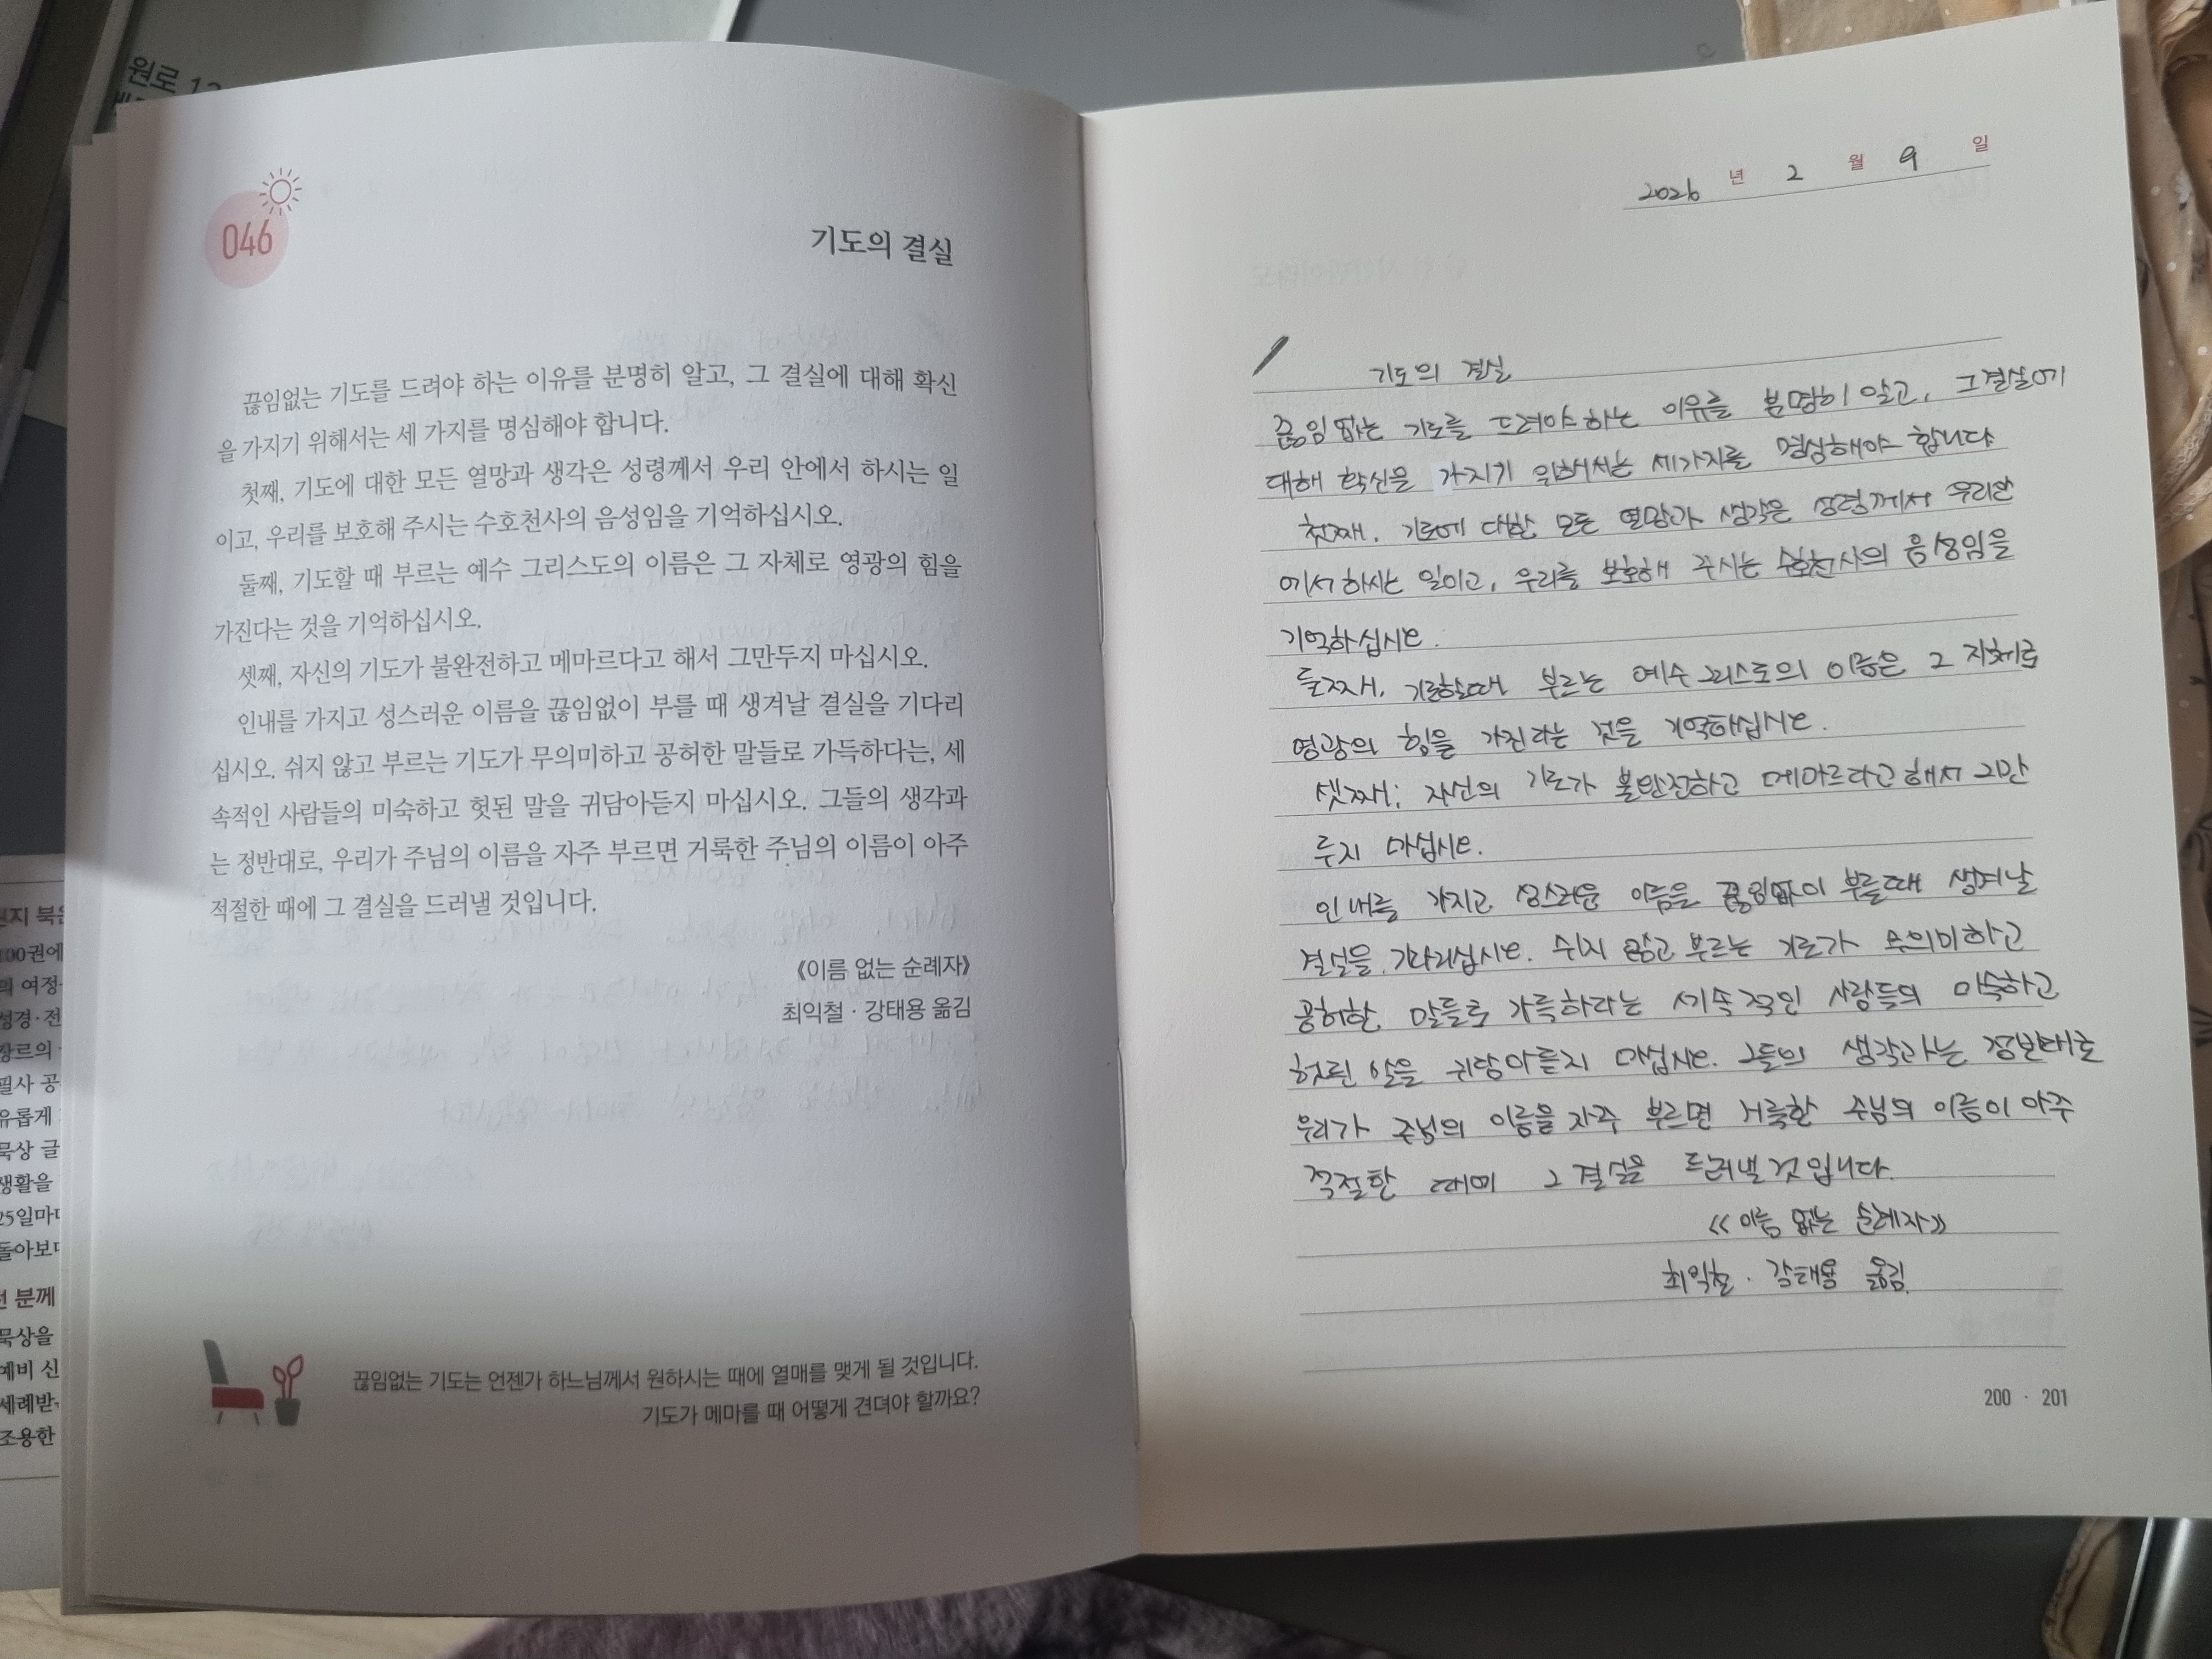 원로 12
046
기도의 결실
끊임없는 기도를 드려야 하는 이유를 분명히 알고, 그 결실에 대해 확신
을 가지기 위해서는 세 가지를 명심해야 합니다.
첫째, 기도에 대한 모든 열망과 생각은 성령께서 우리 안에서 하시는 일
이고, 우리를 보호해 주시는 수호천사의 음성임을 기억하십시오.
둘째, 기도할 때 부르는 예수 그리스도의 이름은 그 자체로 영광의 힘을
가진다는 것을 기억하십시오.
셋째, 자신의 기도가 불완전하고 메마르다고 해서 그만두지 마십시오.
인내를 가지고 성스러운 이름을 끊임없이 부를 때 생겨날 결실을 기다리
십시오. 쉬지 않고 부르는 기도가 무의미하고 공허한 말들로 가득하다는, 세
속적인 사람들의 미숙하고 헛된 말을 귀담아듣지 마십시오. 그들의 생각과
는 정반대로, 우리가 주님의 이름을 자주 부르면 거룩한 주님의 이름이 아주
적절한 때에 그 결실을 드러낼 것입니다.
《이름 없는 순례자》
최익철 · 강태용 옮김
끊임없는 기도는 언젠가 하느님께서 원하시는 때에 열매를 맺게 될 것입니다.
기도가 메마를 때 어떻게 견뎌야 할까요?
2026 년 2 월 9 일
기도의 결실
끊임 없는 기도를 드려야 하는 이유를 분명히 알고, 그 결실에
대해 확신을 가지기 위해서는 세가지를 명심해야 합니다
첫째, 기도에 대한 모든 열망과 생각은 성령께서 우리안
에서 하시는 일이고, 우리를 보호해 주시는 수호천사의 음성임을
기억하십시오.
둘째, 기도할때 부르는 예수 그리스도의 이름은 그 자체로
영광의 힘을 가진다는 것을 기억하십시오.
셋째; 자신의 기도가 불완전하고 메마르다고 해서 그만
두지 마십시오.
인내를 가지고 성스러운 이름을 끊임없이 부를때 생겨날
결실을 기다리십시오. 쉬지 않고 부르는 기도가 무의미하고
공허한 말들로 가득하다는 세속적인 사람들의 미숙하고
헛된 말을 귀담아듣지 마십시오. 그들의 생각과는 정반대로
우리가 주님의 이름을 자주 부르면 거룩한 주님의 이름이 아주
적절한 때에 그 결실을 드러낼 것입니다.
《이름 없는 순례자》
최익철 · 강태용 옮김.
200 · 201
100권에
의 여정
성경·전
장르의
필사 공
유롭게
묵상 글
생활을
25일마다
돌아보
분께
묵상을
예비 신
세례받
조용한